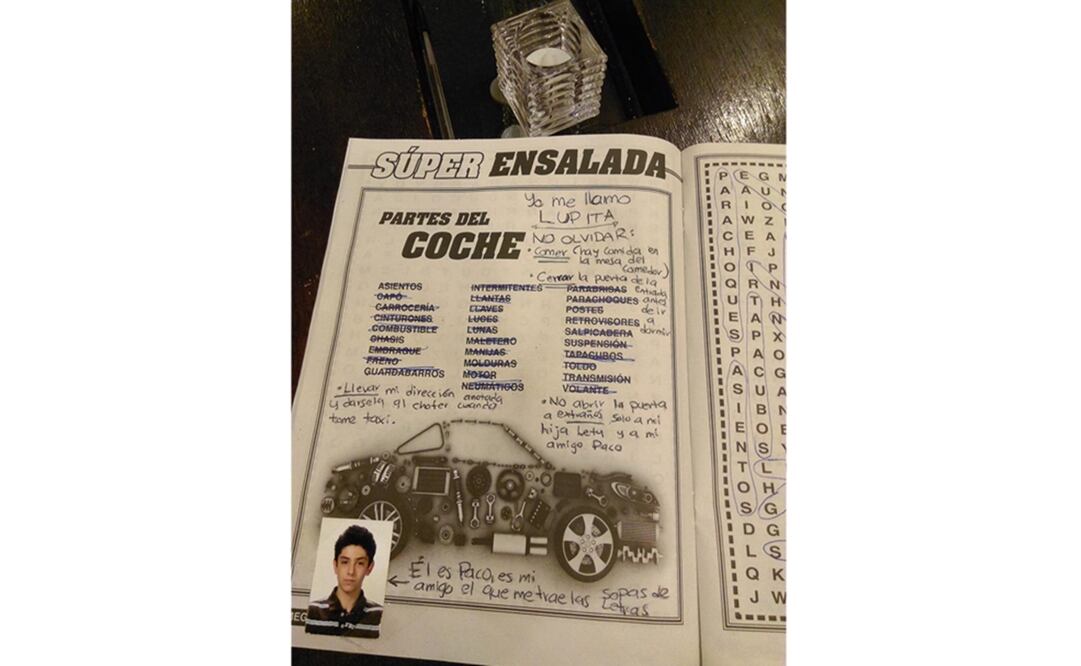 SÚPER ENSALADA
Yo me llamo
LUPITA
PARTES DEL
COCHE
NO OLVIDAR:
• Comer (hay comida en
la mesa del
comedor)
• Cerrar la puerta de la
entrada
antes
de ir
a
dormir
ASIENTOS
CAPÓ
CARROCERÍA
CINTURONES
COMBUSTIBLE
CHASIS
EMBRAGUE
FRENO
GUARDABARROS
INTERMITENTES
LLANTAS
LLAVES
LUCES
LUNAS
MALETERO
MANIJAS
MOLDURAS
MOTOR
NEUMÁTICOS
PARABRISAS
PARACHOQUES
POSTES
RETROVISORES
SALPICADERA
SUSPENSIÓN
TAPACUBOS
TOLDO
TRANSMISIÓN
VOLANTE
• Llevar mi dirección anotada
y darsela al chofer cuando
tome taxi.
• No abrir la puerta
a extraños, solo a mi
hija Lety y a mi
amigo Paco
← Él es Paco, es mi
amigo el que me trae las sopas de
letras
P E G M
A A U
R I O
A W Z
C E A
H F J
O I P
Q R N
U T H
E A N
S P X
P A O
A C G
S U A
I B N
E O E
N S Y
T L
O H
S G
D G
L S
Q K
J W